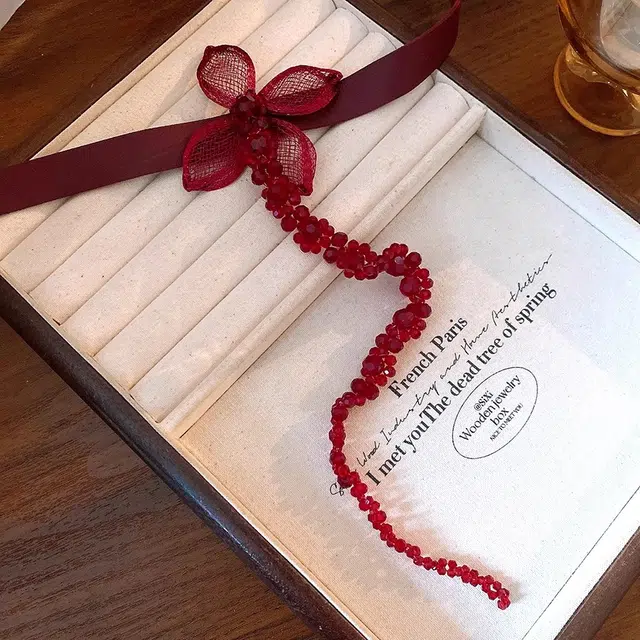 French Paris
Wood Industry and Home Aesthetics
I met youThe dead tree of spring
@SIXI
Wooden jewelry
box
NICE TO MEET YOU